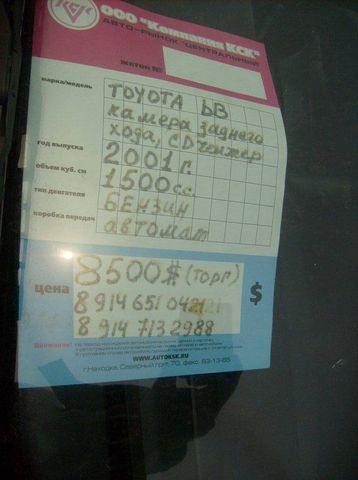 КСК
ООО "Компания КСК"
АВТО-РЫНОК "ЦЕНТРАЛЬНЫЙ"
ЖЕТОН №
марка/модель TOYOTA bB
камера заднего
хода, CDченжер
год выпуска 2001 г.
объем куб. см 1500сс.
тип двигателя БЕНЗИН
коробка передач автомат
цена 8500$ (торг)
8 914 651 0421
8 914 713 2988
$
Внимание!
WWW.AUTOKSK.RU
г.Находка, Северный пр-т, 70, факс: 63-13-65